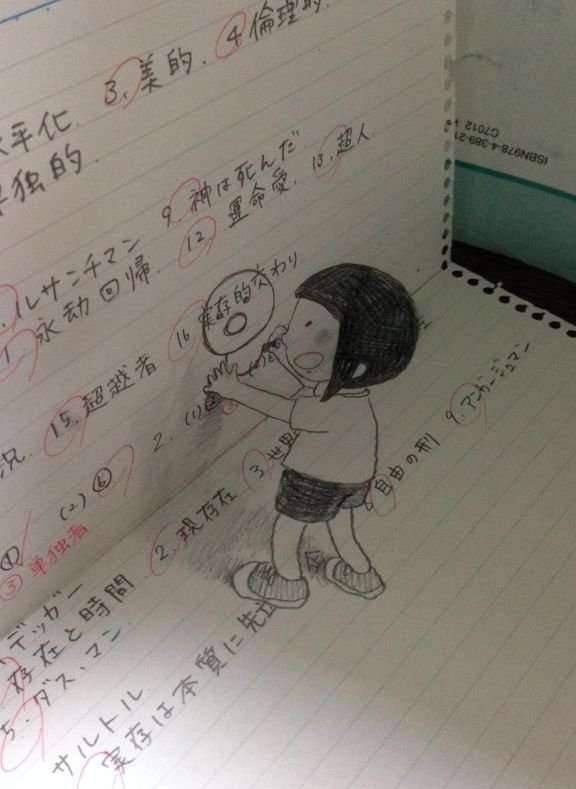 3. 美的. 4 倫理的.
水平化.
単独的.
ルサンチマン 9. 神は死んだ
永劫回帰. 12 運命愛. 13. 超人
況. 15. 超越者 16 実存的交わり
(2) ⑥ 2. (1)
③ 単独者
デッガー
存在と時間 2. 現存在 3. 世界
5. ダス・マン
サルトル
実存は本質に先立
自由の刑 9. アンガージュマン
ISBN978-4-389-21
C7012